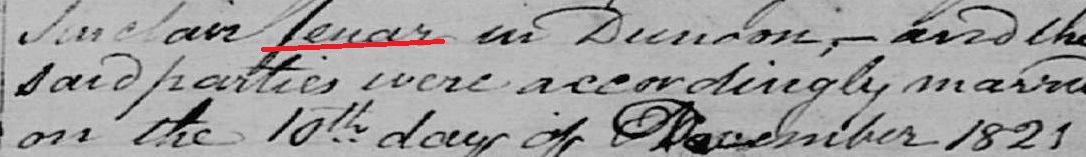 Sinclair feuar in Dunoon, – and the
said parties were accordingly married
on the 10th day of December 1821